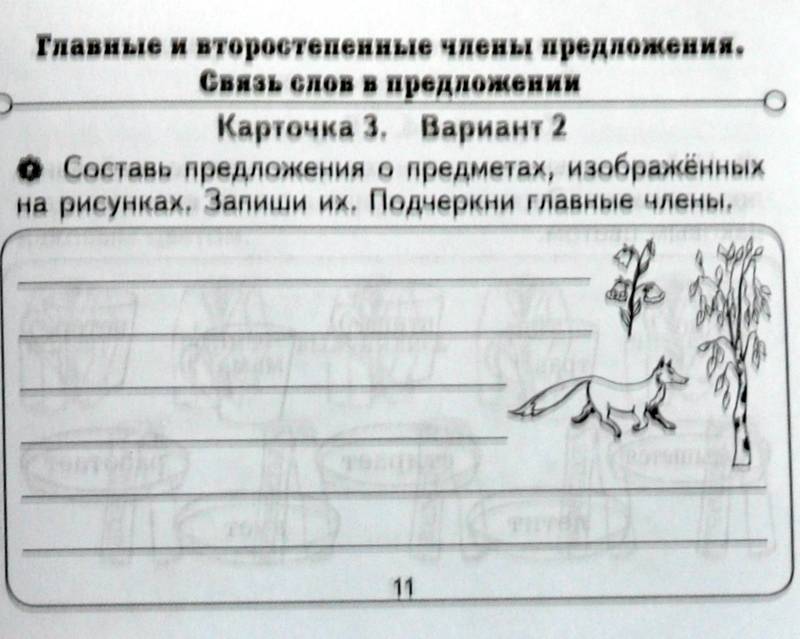 Главные и второстепенные члены предложения.
Связь слов в предложении
Карточка 3. Вариант 2
Составь предложения о предметах, изображённых
на рисунках. Запиши их. Подчеркни главные члены.
11